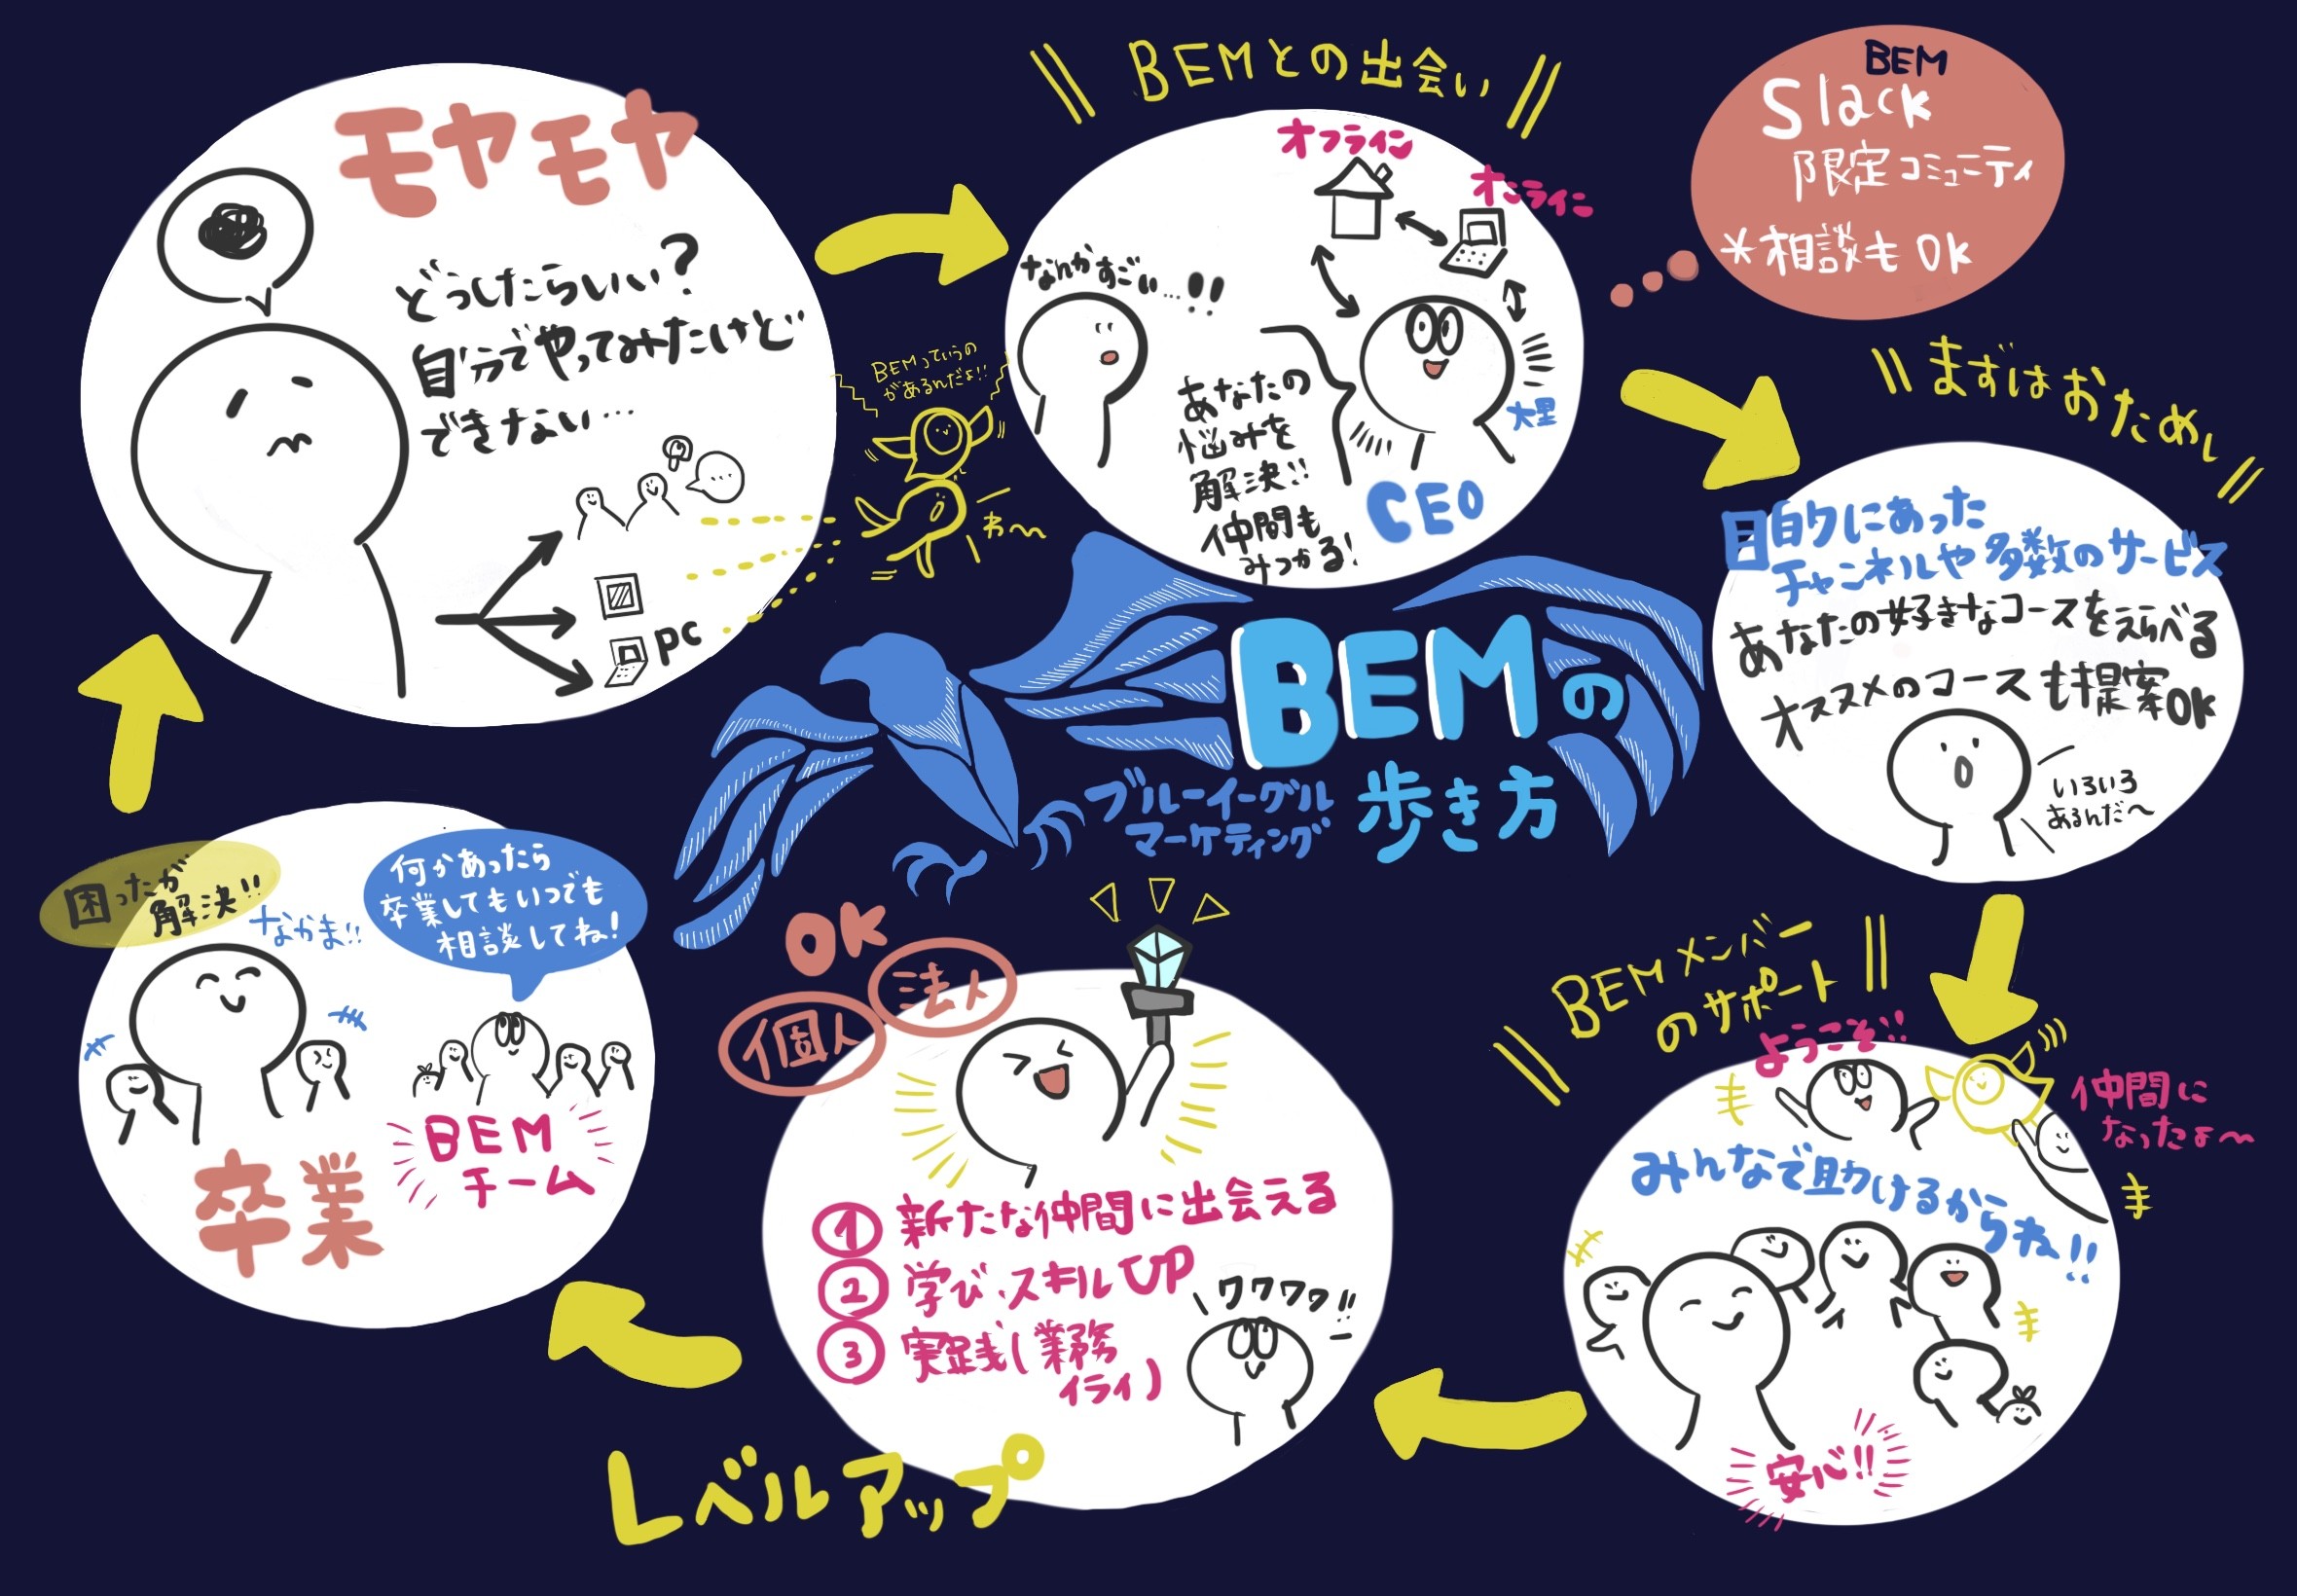 モヤモヤ
どうしたらいい?
自分でやってみたけど
できない…
PC
BEMっていうの
があるんだよ!!
わ〜
BEMとの出会い
オフライン
オンライン
なんかすごい…!!
あなたの
悩みを
解決!!
仲間も
みつかる!
大里
CEO
BEM
Slack
限定コミュニティ
*相談もOK
まずはおためし
目白クにあった
チャンネルや多数のサービス
あなたの好きなコースをえらべる
オススメのコースも提案OK
いろいろ
あるんだ〜
BEMの
歩き方
ブルーイーグル
マーケティング
BEMメンバー
のサポート
ようこそ!!
仲間に
なったよ〜
みんなで助けるからね!!
安心!!
OK
法人
個人
① 新たな仲間に出会える
② 学び、スキルUP
③ 実践(業務
イライ)
ワクワク!!
レベルアップ
困ったが
解決!!
なかま!!
何かあったら
卒業してもいつでも
相談してね!
BEM
チーム
卒業